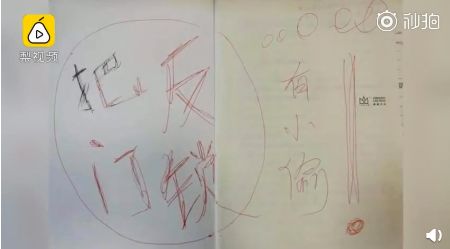 梨视频
秒拍
把门
反锁
有小偷！